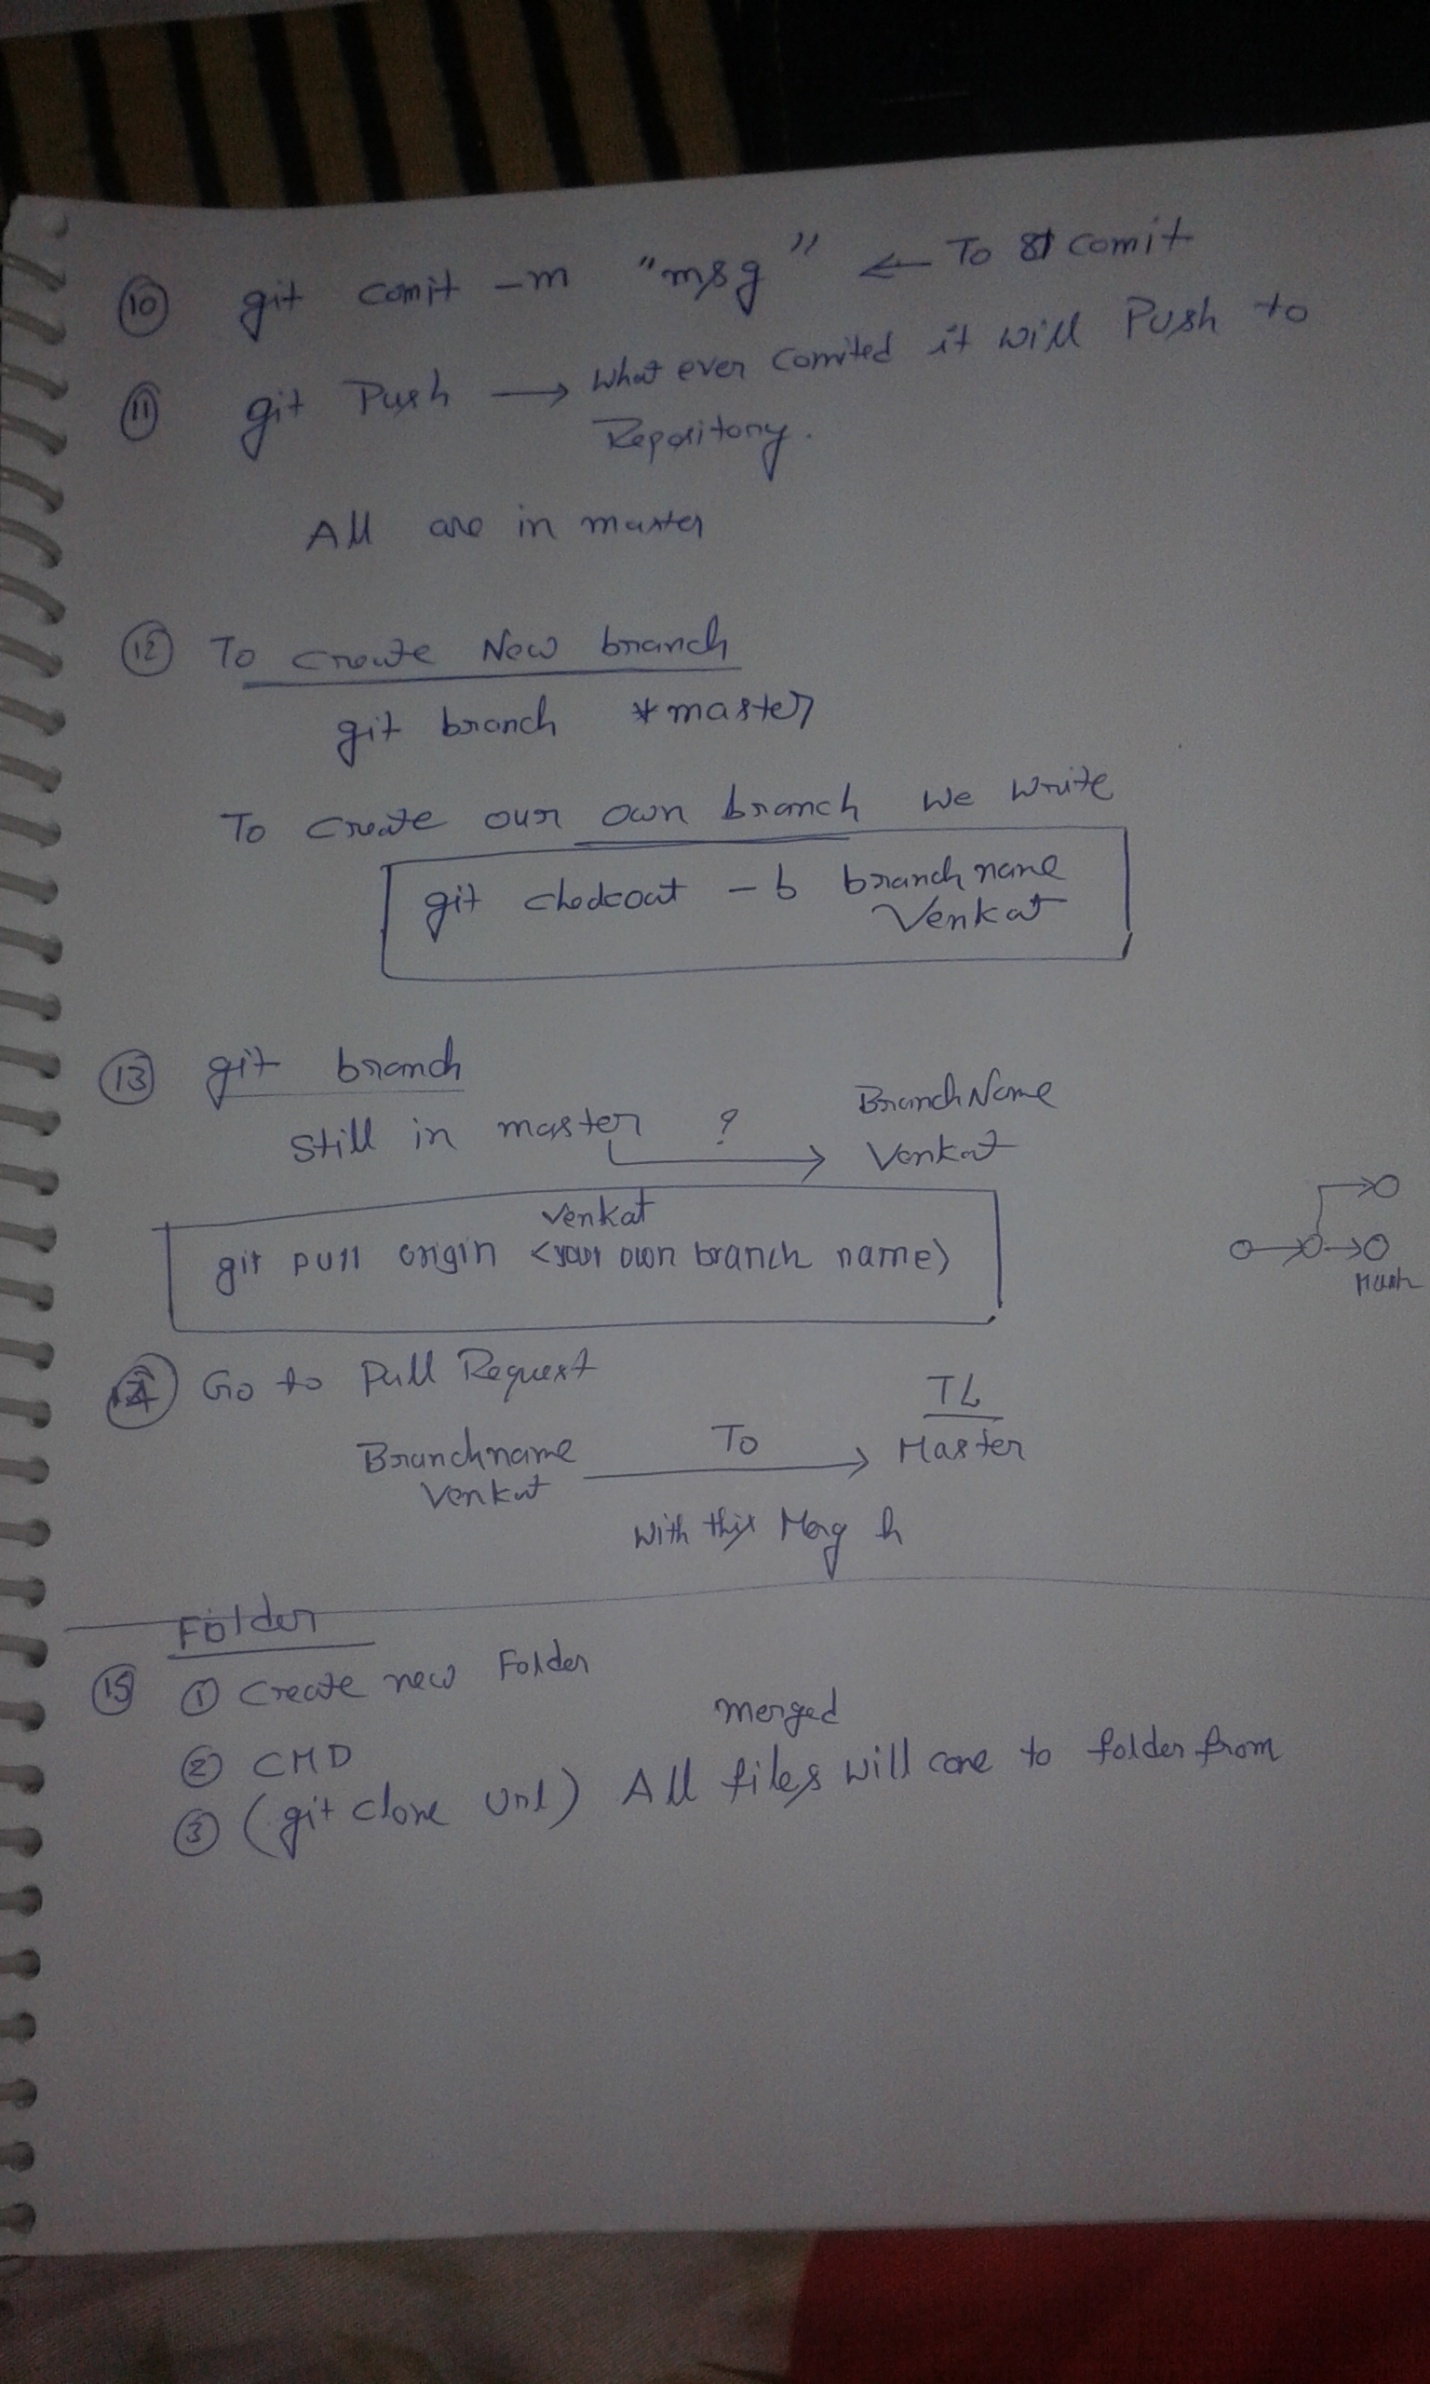 10 git comit -m "msg" ← To comit
11 git Push → What ever comited it will Push to
Repository.
All are in master
12 To Create New branch
git branch *master
To Create our own branch we write
git checkout -b branch name
Venkat
13 git branch
Still in master ? → Branch Name
Venkat
Venkat
git pull origin <your own branch name>
14 Go to Pull Request
Branchname To → TL
Venkat Master
With this Merg
Folder
15 1 Create new Folder
2 CMD
merged
3 (git clone Url) All files will come to folder from